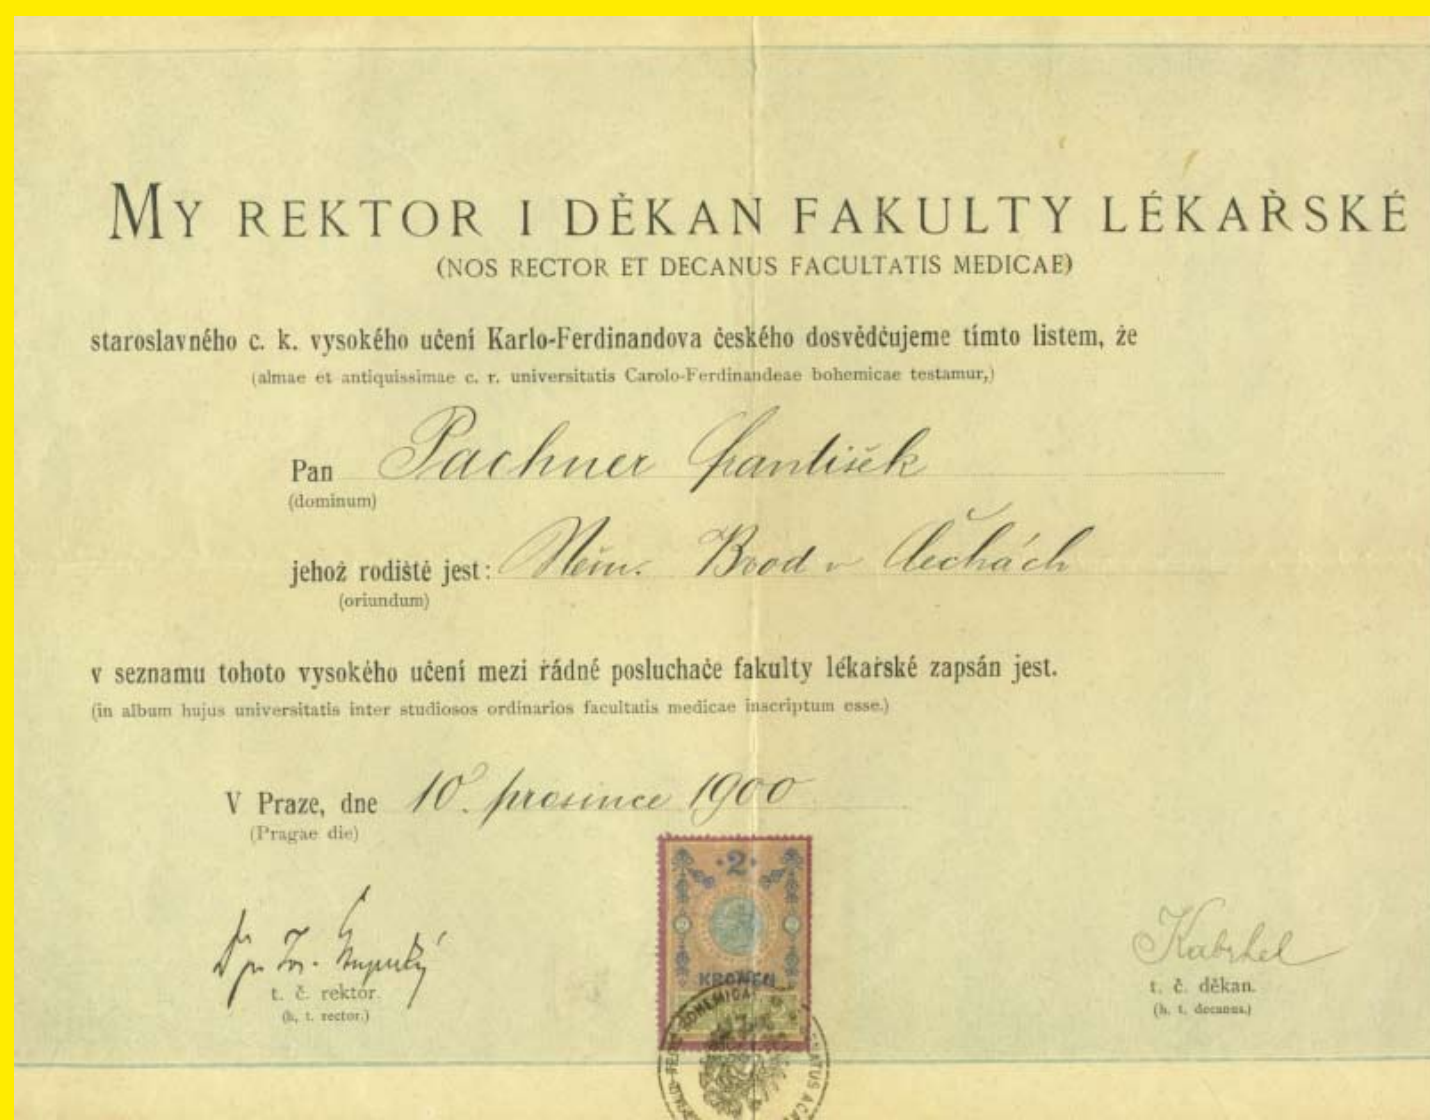 MY REKTOR I DĚKAN FAKULTY LÉKAŘSKÉ
(NOS RECTOR ET DECANUS FACULTATIS MEDICAE)
staroslavného c. k. vysokého učení Karlo-Ferdinandova českého dosvědčujeme tímto listem, že
(almae et antiquissimae c. r. universitatis Carolo-Ferdinandeae bohemicae testamur,)
Pan Pachner František
(dominum)
jehož rodiště jest: Něm. Brod v Čechách
(oriundum)
v seznamu tohoto vysokého učení mezi řádné posluchače fakulty lékařské zapsán jest.
(in album hujus universitatis inter studiosos ordinarios facultatis medicae inscriptum esse.)
V Praze, dne 10. prosince 1900
(Pragae die)
2
KRONEN
Dr Jos.
t. č. rektor.
(h. t. rector.)
Kabrhel
t. č. děkan.
(h. t. decanus.)
BOHEMICA